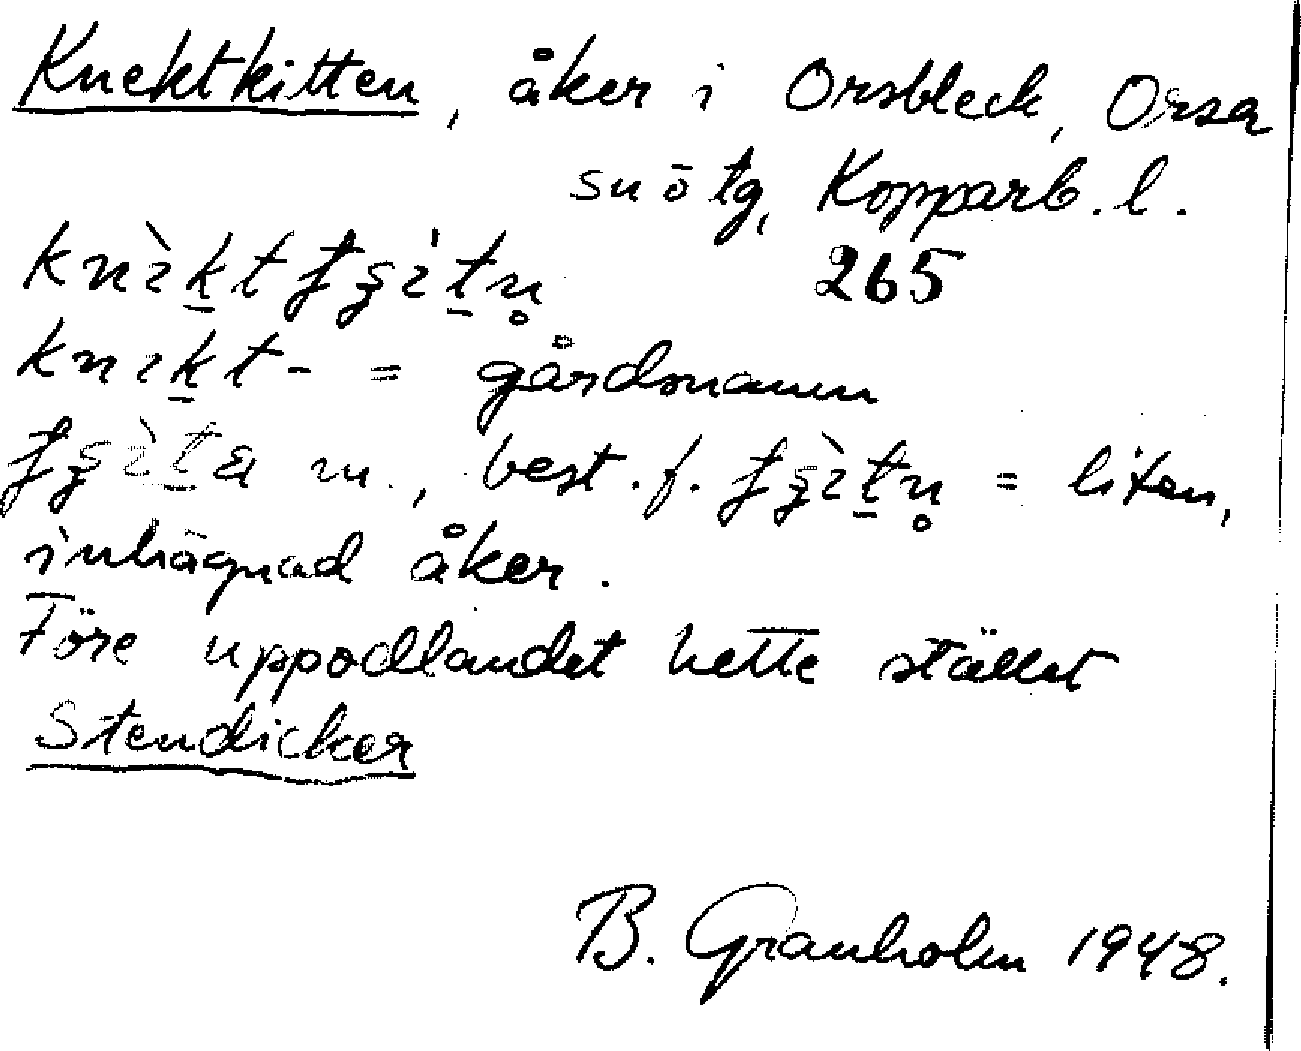 Knektkitten, åker i Orsbleck, Orsa
sn ō tg, Kopparb. l.
265
knekt- = gårdsnamn
m., best. f. = liten,
inhägnad åker.
Före uppodlandet hette stället
Stendicker
B. Granholm 1948.